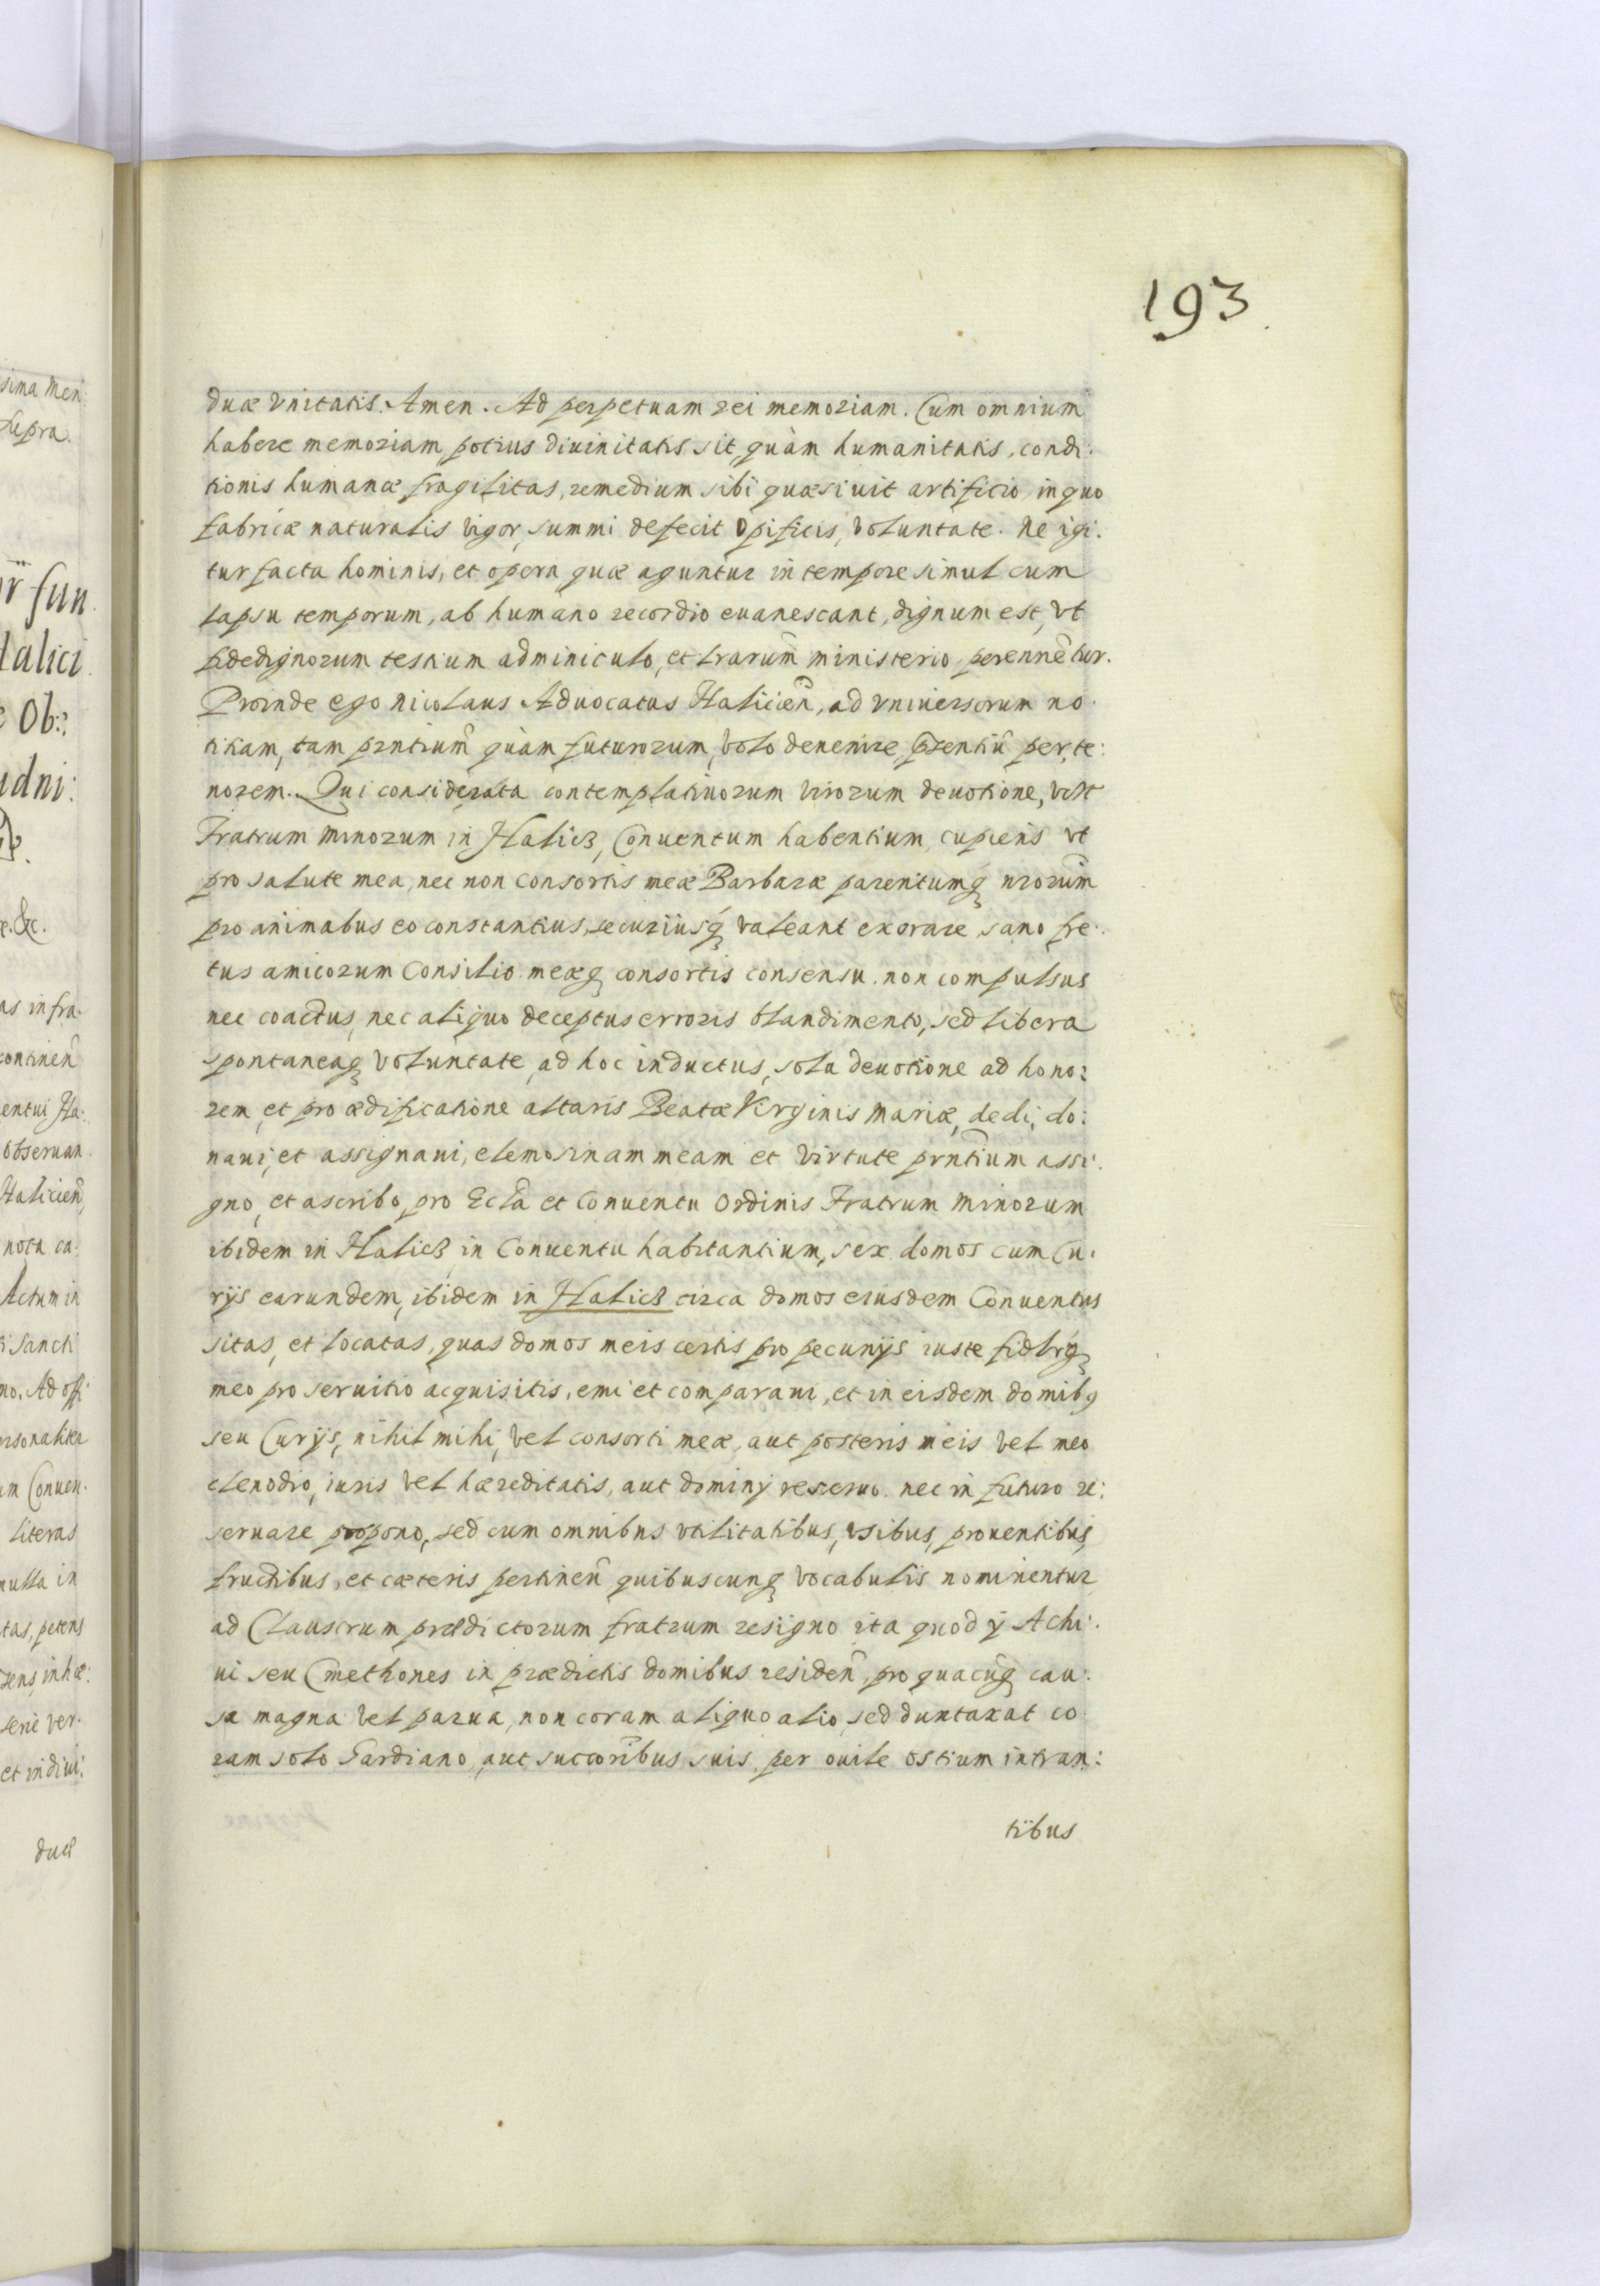 193
duæ vnitatis. Amen. Ad perpetuam rei memoriam. Cum omnium
habere memoriam potius diuinitatis sit, quàm humanitatis, condi:
tionis humanæ fragilitas, remedium sibi quæsiuit artificio, in quo
fabricæ naturalis vigor, summi defecit Opificis, voluntate. Ne igi:
tur facta hominis, et opera quæ aguntur in tempore simul cum
lapsu temporum, ab humano recordio euanescant, dignum est, vt
fidedignorum testium adminiculo, et lrarum̃ ministerio perennẽtur.
Proinde ego Nicolaus Aduocatus Halicien̄, ad vniuersorum no:
titiam, tam pntium̃ quàm futurorum, volo deuenire, przentiũ per te:
norem. Qui considerata contemplatiuorum virorum deuotione, vt
Fratrum Minorum in Halicz, Conuentum habentium, cupiens vt
pro salute mea, nec non consortis meæ Barbaræ parentumq́ nrorum̃
pro animabus eo constantius, securiusq́ valeant exorare, sano fre:
tus amicorum Consilio meæq consortis consensu. non compulsus
nec coactus, nec aliquo deceptus erroris blandimento, sed libera
spontaneaq voluntate, ad hoc inductus, sola deuotione ad hono:
rem, et pro ædificatione altaris Beatæ Virginis Mariæ, dedi, do:
naui, et assignaui, elemosinam meam et virtute prntium̃ assi:
gno, et ascribo, pro Eccla͂ et Conuentu Ordinis Fratrum Minorum
ibidem in Halicz in Conuentu habitantium, sex domos cum Cu:
rÿs earundem, ibidem in Halicz circa domos eiusdem Conuentus
sitas, et locatas, quas domos meis certis pro pecunÿs iuste fidlrq́
meo pro seruitio acquisitis, emi et comparaui, et in eisdem domibꝯ
seu Curÿs, nihil mihi, vel consorti meæ, aut posteris meis vel meo
clenodio, iuris vel hæreditatis, aut dominÿ reseruo. nec in futuro re:
seruare propono, sed cum omnibus vtilitatibus, vsibus, prouentibus,
fructibus, et cæteris pertinen̄ quibuscunq vocabulis nominentur
ad Claustrum prædictorum fratrum resigno ita quod ÿ Achi:
ui seu Cmethones in prædictis domibus residen̄, pro quacũq cau:
sa magna vel parua, non coram aliquo alio, sed duntaxat co:
ram solo Gardiano, aut succoribus̃ suis, per ouile ostium intran:
tibus
sima Men
supra.
fun
Halici
Ob:
udni:
&c.
as infra:
continen̄
entui Ha:
obseruan
Halicien̄,
nota ca:
Actum in
Sancti
no. Ad offi
rsonaliter
um Conuen:
literas
nulla in
tas, petens
rens, in hæ:
serie ver:
et indiui:
duæ